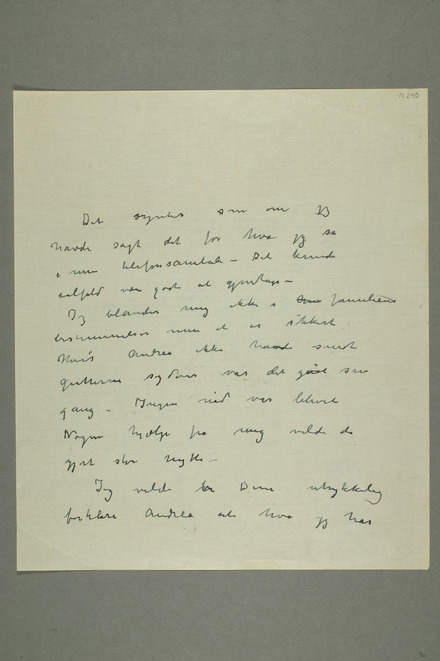 N 240
Det synes som om jeg
havde sagt det før hva jeg sa
i min telefonsamtale – Det kunde
ialfald være godt at gjentages –
Jeg blander mig ikke i familiens
bestemmelser men et er sikkert
Hvis Andrea ikke havde sendt
guttens sydover var det gåt som
gang – Ingen var blevet
Nogen hjælp fra mig vilde de
gjort stor nytte –
Jeg vilde De uttrykkelig
forklare Andrea alt hva jeg har